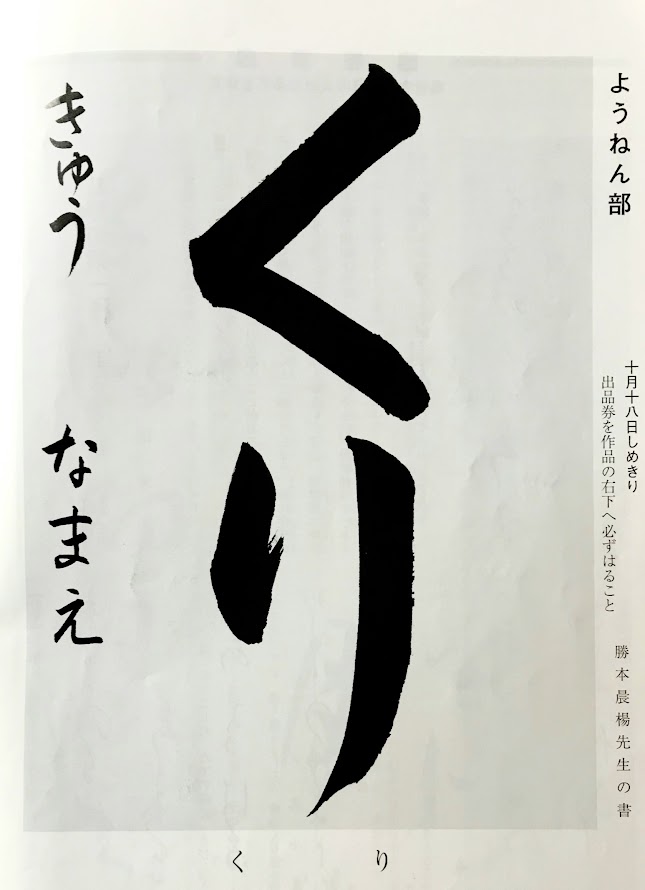 ようねん部
十月十八日しめきり
出品券を作品の右下へ必ずはること
勝本晨楊先生の書
くり
きゅう
なまえ
くり